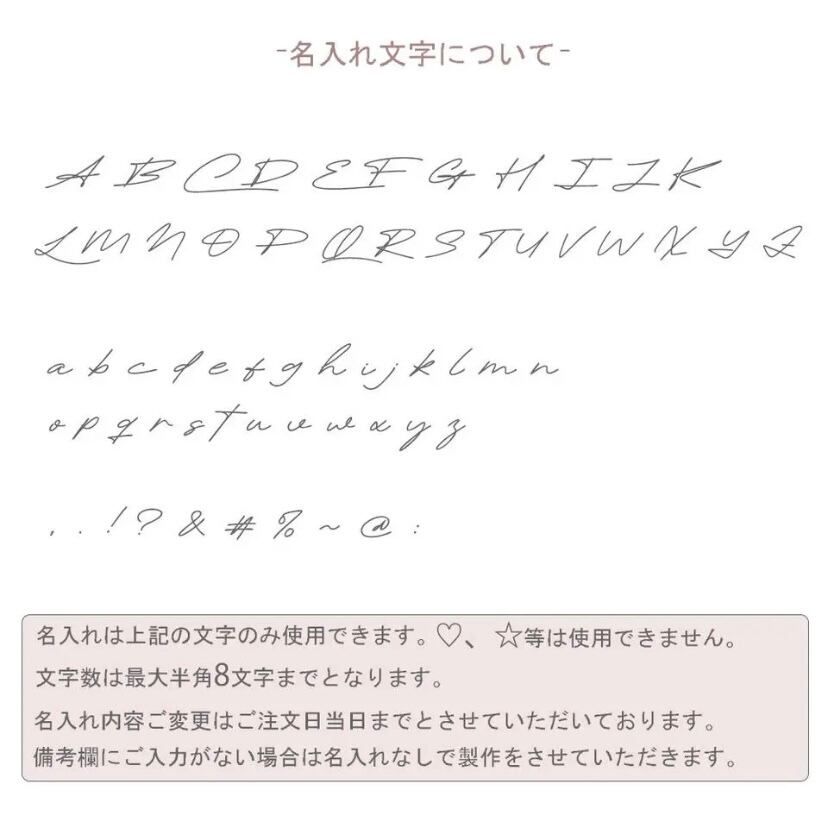 -名入れ文字について-
A B C D E F G H I J K
L M N O P Q R S T U V W X Y Z
a b c d e f g h i j k l m n
o p q r s t u v w x y z
, . ! ? & # % ~ @ :
名入れは上記の文字のみ使用できます。♡、☆等は使用できません。
文字数は最大半角8文字までとなります。
名入れ内容ご変更はご注文日当日までとさせていただいております。
備考欄にご入力がない場合は名入れなしで製作をさせていただきます。